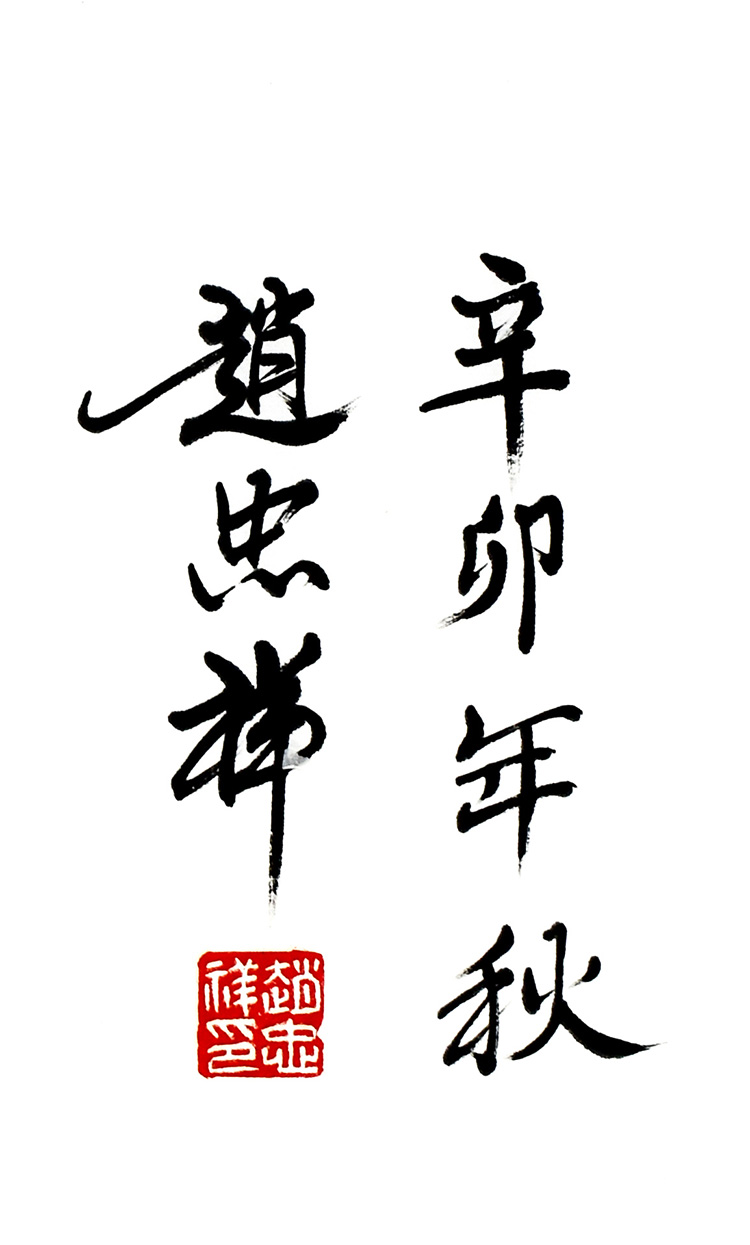 辛卯年秋
趙忠祥
趙忠祥印